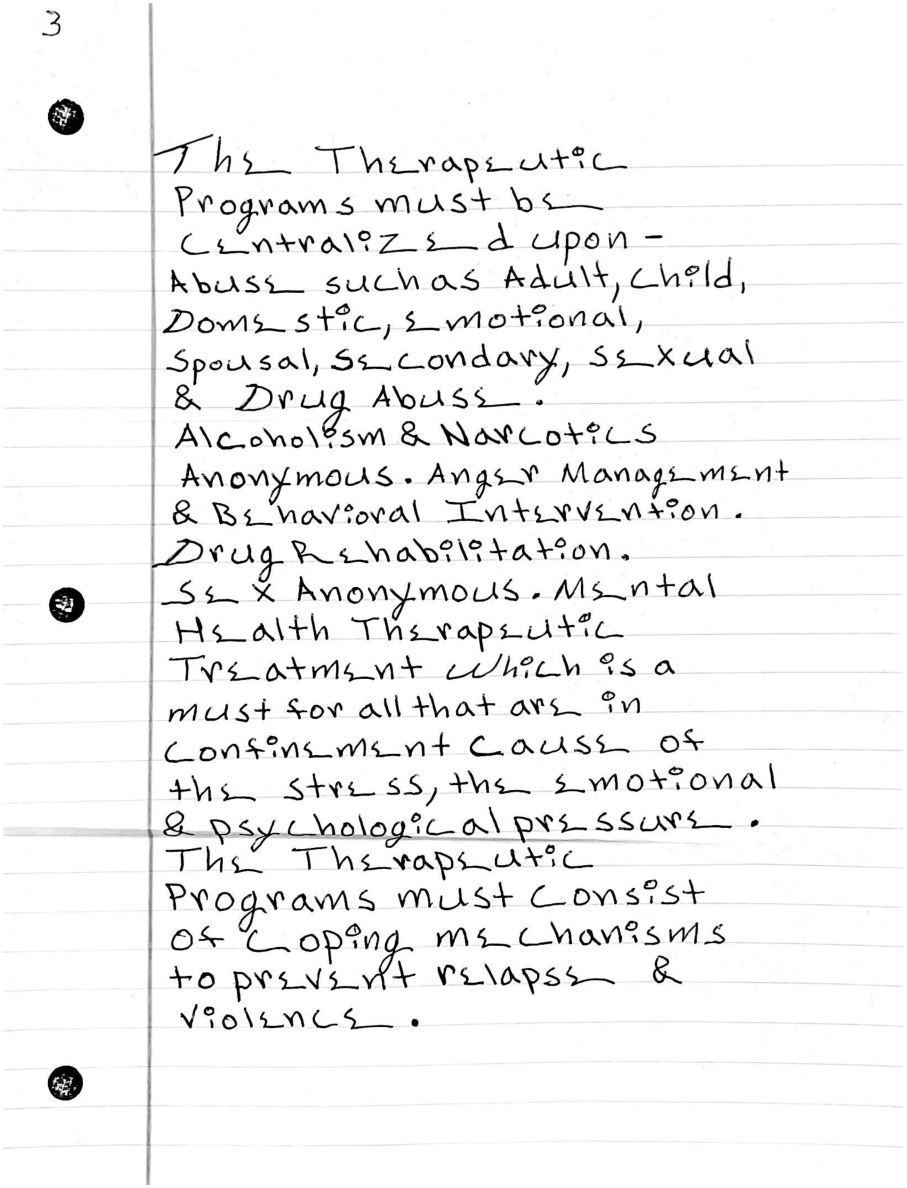 3
The Therapeutic
Programs must be
Centralized upon -
Abuse such as Adult, Child,
Domestic, Emotional,
Spousal, Secondary, Sexual
& Drug Abuse.
Alcoholism & Narcotics
Anonymous. Anger Management
& Behavioral Intervention.
Drug Rehabilitation.
Sex Anonymous. Mental
Health Therapeutic
Treatment which is a
must for all that are in
Confinement Cause of
the stress, the emotional
& psychological pressure.
The Therapeutic
Programs must consist
of coping mechanisms
to prevent relapse &
violence.